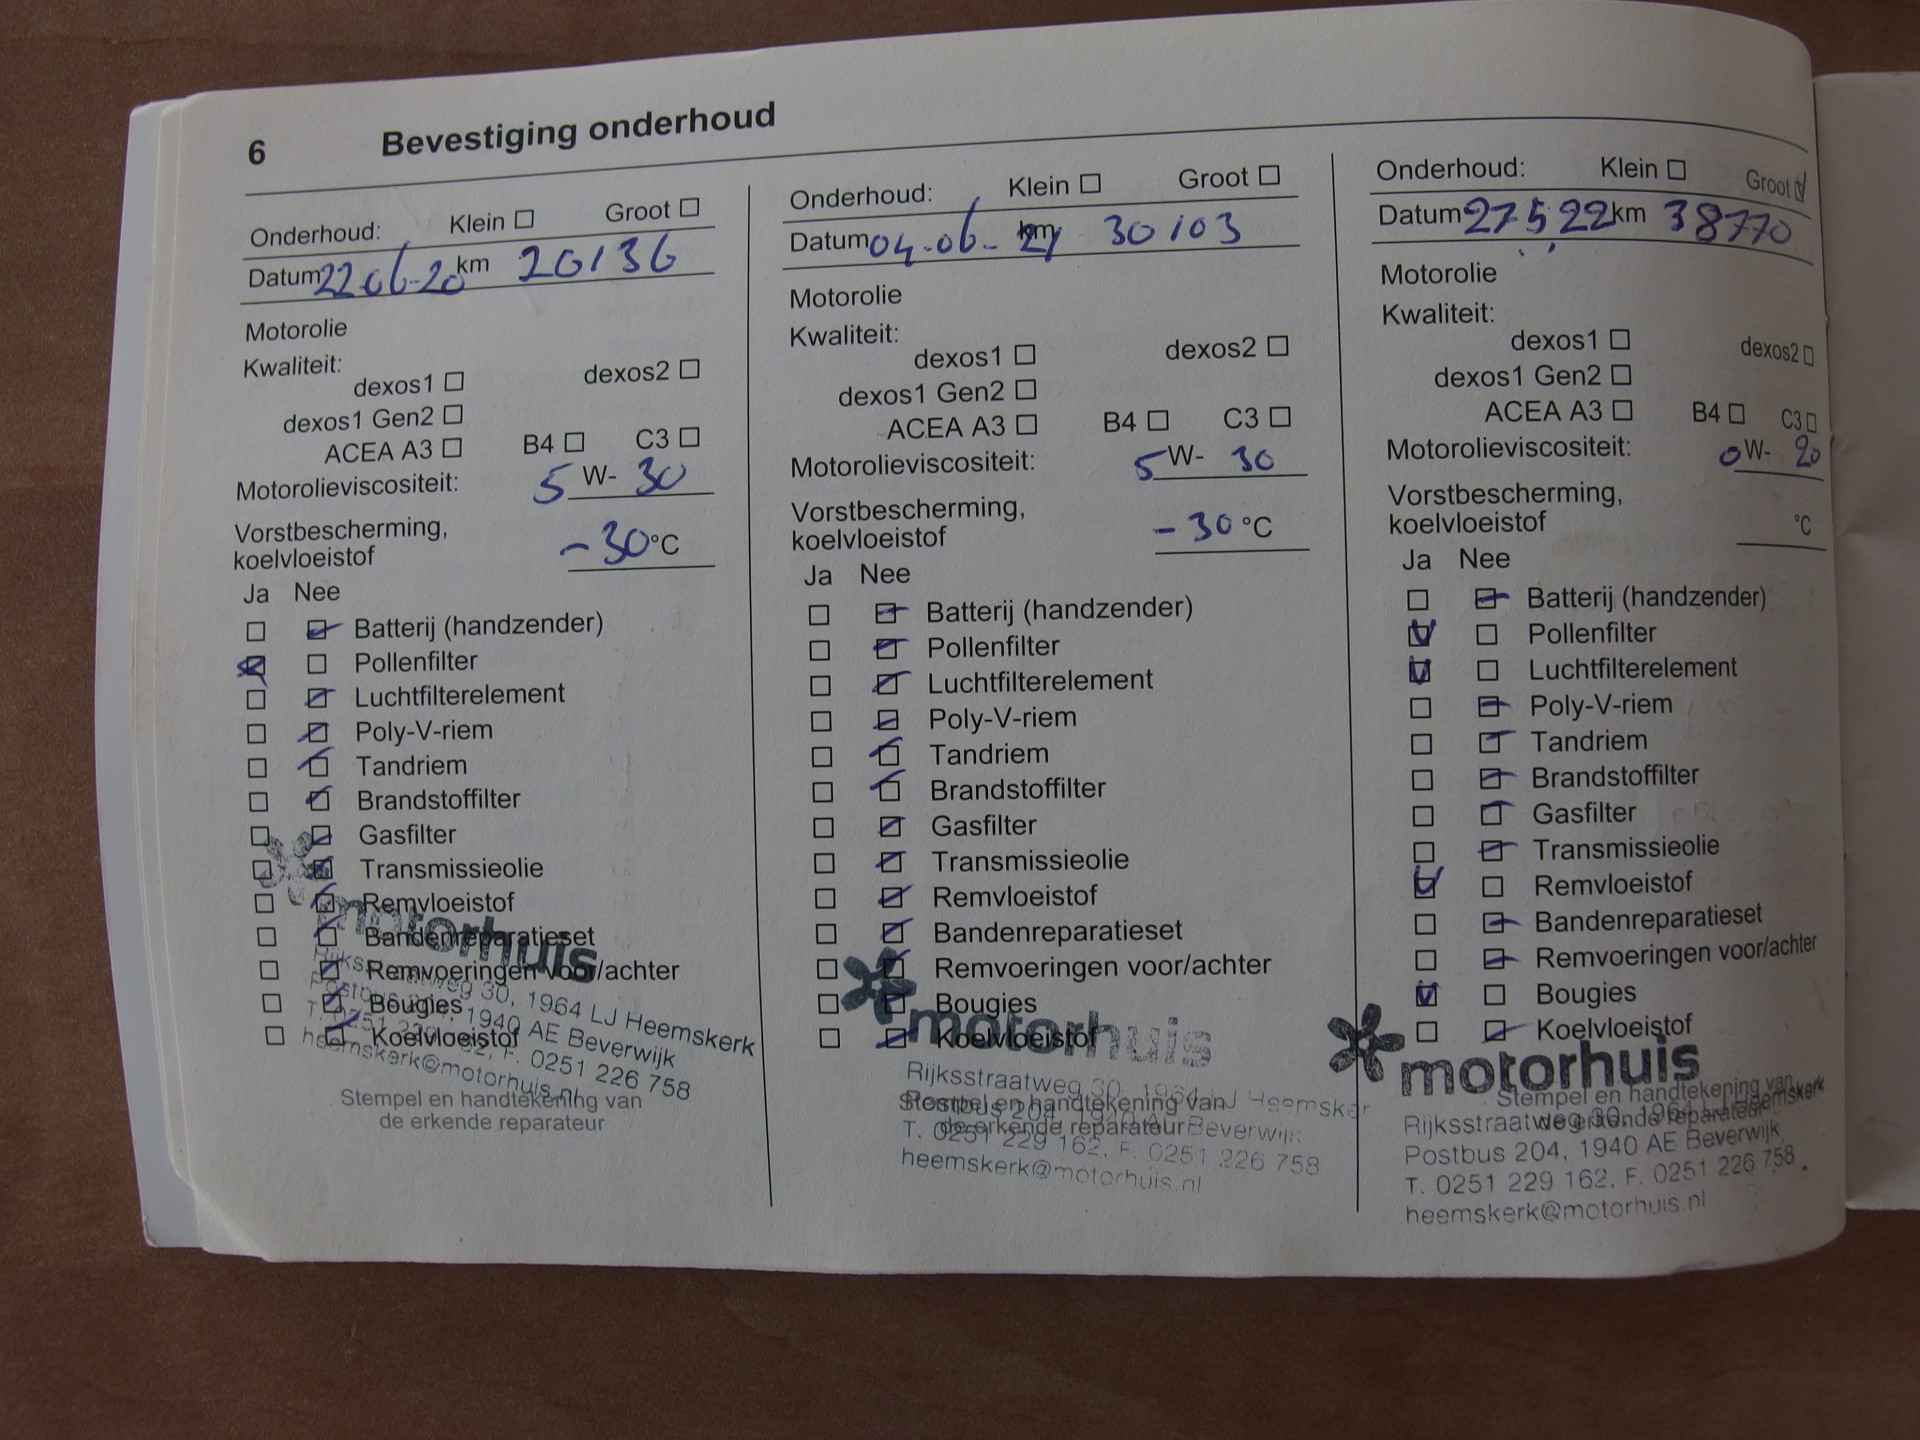 6 Bevestiging onderhoud
Onderhoud: Klein Groot
Datum 22-06-20 km 20136
Motorolie
Kwaliteit:
dexos1 dexos2
dexos1 Gen2
ACEA A3 B4 C3
Motorolieviscositeit: 5 W- 30
Vorstbescherming,
koelvloeistof -30 °C
Ja Nee
Batterij (handzender)
Pollenfilter
Luchtfilterelement
Poly-V-riem
Tandriem
Brandstoffilter
Gasfilter
Transmissieolie
Remvloeistof
Bandenreparatieset
Remvoeringen voor/achter
Bougies
Koelvloeistof
motorhuis
30, 1964 LJ Heemskerk
1940 AE Beverwijk
F. 0251 226 758
heemskerk@motorhuis.nl
Stempel en handtekening van
de erkende reparateur
Onderhoud: Klein Groot
Datum 04-06-21 km 30103
Motorolie
Kwaliteit:
dexos1 dexos2
dexos1 Gen2
ACEA A3 B4 C3
Motorolieviscositeit: 5 W- 30
Vorstbescherming,
koelvloeistof -30 °C
Ja Nee
Batterij (handzender)
Pollenfilter
Luchtfilterelement
Poly-V-riem
Tandriem
Brandstoffilter
Gasfilter
Transmissieolie
Remvloeistof
Bandenreparatieset
Remvoeringen voor/achter
Bougies
Koelvloeistof
motorhuis
Rijksstraatweg 30, 1964 LJ Heemsker
Stempel en handtekening van
Postbus 204, 1940 AE Beverwijk
de erkende reparateur
T. 0251 229 162, F. 0251 226 758
heemskerk@motorhuis.nl
Onderhoud: Klein Groot
Datum 27 5 22 km 38770
Motorolie
Kwaliteit:
dexos1 dexos2
dexos1 Gen2
ACEA A3 B4 C3
Motorolieviscositeit: 0 W- 20
Vorstbescherming,
koelvloeistof °C
Ja Nee
Batterij (handzender)
Pollenfilter
Luchtfilterelement
Poly-V-riem
Tandriem
Brandstoffilter
Gasfilter
Transmissieolie
Remvloeistof
Bandenreparatieset
Remvoeringen voor/achter
Bougies
Koelvloeistof
motorhuis
Stempel en handtekening van
de erkende reparateur
Rijksstraatweg 30, 1964 LJ Heemskerk
Postbus 204, 1940 AE Beverwijk
T. 0251 229 162, F. 0251 226 758
heemskerk@motorhuis.nl